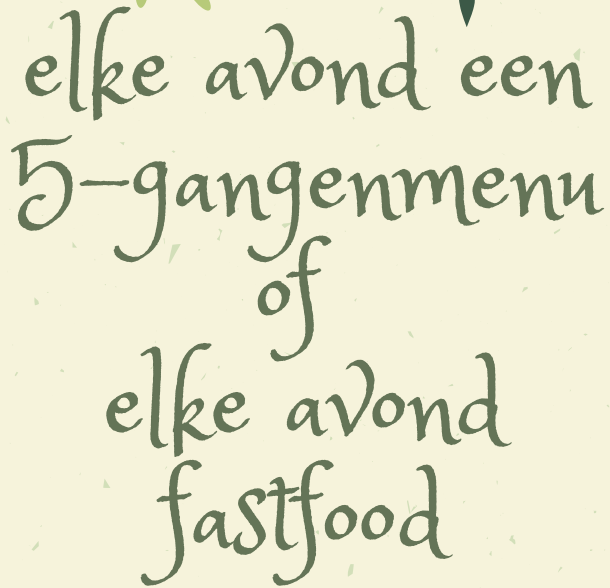 elke avond een
5-gangenmenu
of
elke avond
fastfood